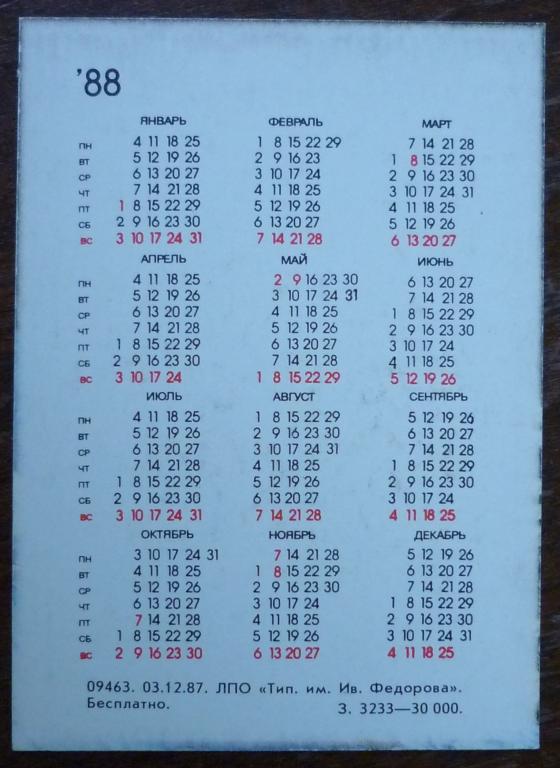 '88
ЯНВАРЬ ФЕВРАЛЬ МАРТ
ПН 4 11 18 25 1 8 15 22 29 7 14 21 28
ВТ 5 12 19 26 2 9 16 23 1 8 15 22 29
СР 6 13 20 27 3 10 17 24 2 9 16 23 30
ЧТ 7 14 21 28 4 11 18 25 3 10 17 24 31
ПТ 1 8 15 22 29 5 12 19 26 4 11 18 25
СБ 2 9 16 23 30 6 13 20 27 5 12 19 26
ВС 3 10 17 24 31 7 14 21 28 6 13 20 27
АПРЕЛЬ МАЙ ИЮНЬ
ПН 4 11 18 25 2 9 16 23 30 6 13 20 27
ВТ 5 12 19 26 3 10 17 24 31 7 14 21 28
СР 6 13 20 27 4 11 18 25 1 8 15 22 29
ЧТ 7 14 21 28 5 12 19 26 2 9 16 23 30
ПТ 1 8 15 22 29 6 13 20 27 3 10 17 24
СБ 2 9 16 23 30 7 14 21 28 4 11 18 25
ВС 3 10 17 24 1 8 15 22 29 5 12 19 26
ИЮЛЬ АВГУСТ СЕНТЯБРЬ
ПН 4 11 18 25 1 8 15 22 29 5 12 19 26
ВТ 5 12 19 26 2 9 16 23 30 6 13 20 27
СР 6 13 20 27 3 10 17 24 31 7 14 21 28
ЧТ 7 14 21 28 4 11 18 25 1 8 15 22 29
ПТ 1 8 15 22 29 5 12 19 26 2 9 16 23 30
СБ 2 9 16 23 30 6 13 20 27 3 10 17 24
ВС 3 10 17 24 31 7 14 21 28 4 11 18 25
ОКТЯБРЬ НОЯБРЬ ДЕКАБРЬ
ПН 3 10 17 24 31 7 14 21 28 5 12 19 26
ВТ 4 11 18 25 1 8 15 22 29 6 13 20 27
СР 5 12 19 26 2 9 16 23 30 7 14 21 28
ЧТ 6 13 20 27 3 10 17 24 1 8 15 22 29
ПТ 7 14 21 28 4 11 18 25 2 9 16 23 30
СБ 1 8 15 22 29 5 12 19 26 3 10 17 24 31
ВС 2 9 16 23 30 6 13 20 27 4 11 18 25
09463. 03.12.87. ЛПО «Тип. им. Ив. Федорова».
Бесплатно. З. 3233—30 000.